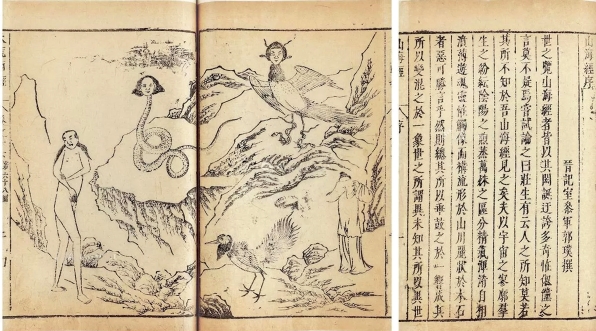 山海經序
晉記室參軍郭璞撰
世之覽山海經者皆以其閎誕迂誇多奇怪俶儻之
言莫不疑焉嘗試論之曰莊生有云人之所知莫若
其所不知於吾山海經見之矣夫以宇宙之寥廓羣
生之紛紜陰陽之煦蒸萬殊之區分精氣渾淆自相
濆薄遊魂靈怪觸像而構流形於山川麗狀於木石
者惡可勝言乎然則總其所以乖鼓之於一響成其
所以變混之於一象世之所謂異未知其所以異世
山海經 序